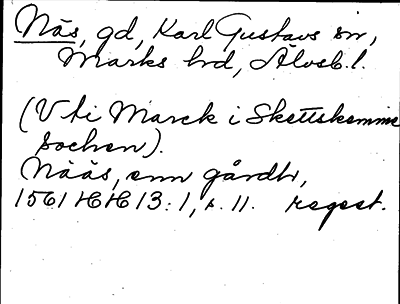 Näs, gd, Karl Gustavs sn,
Marks hd, Älvsb. l.
(Uti Marck i Skettskemme
Sochen).
Nääs, enn gårdh,
1561 HH 13:1, s. 11. regest.